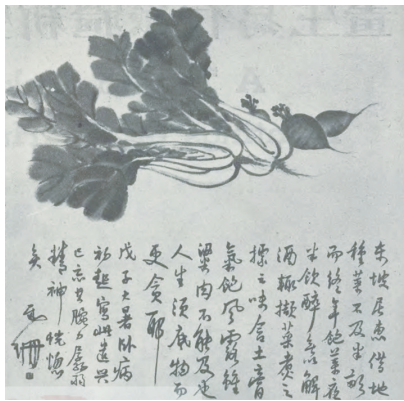 東坡居惠借地
種菜不及半畝
而終年飽菜夜
半飲醉無以解
酒輒擷菜煮之
味含土膏
氣飽風露雖
粱肉不能及也
人生須底物而
更貪耶
戊子大暑臥病
初起寫此遣興
已忘其腕力孱弱
精神恍惚
矣